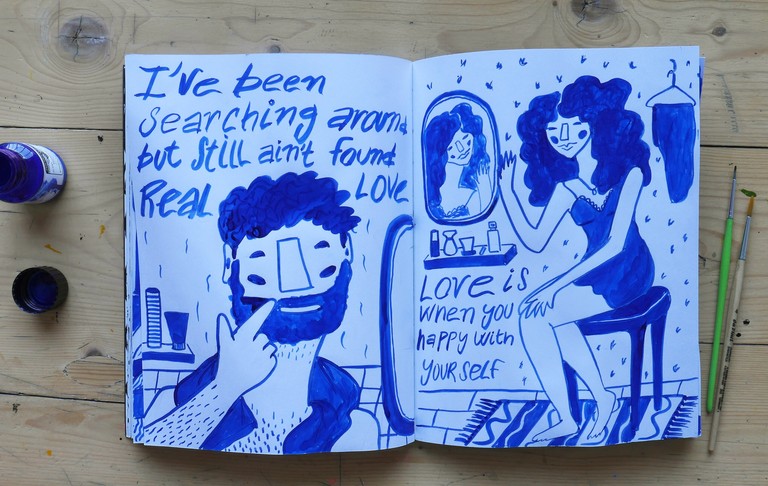 I've been
searching around
but still ain't found
Real LOVE
LOVE is
when you
happy with
YOUR SELF